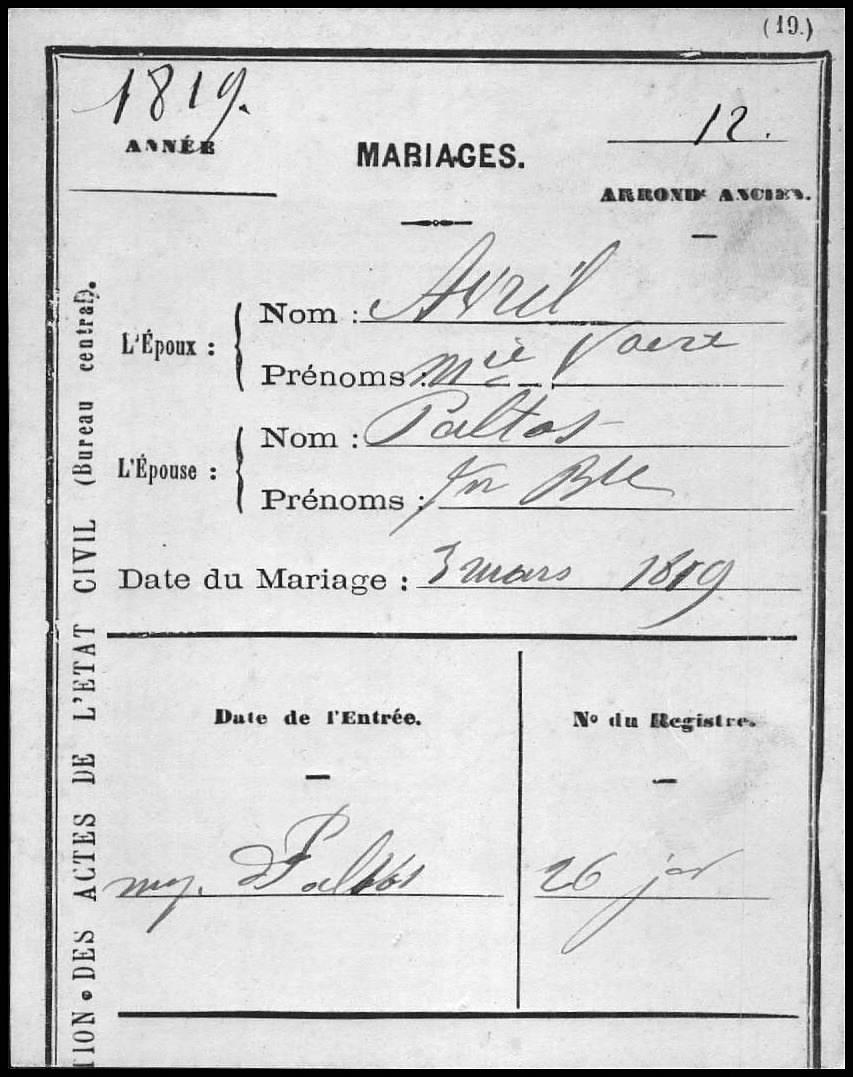 (19.)
1819.
ANNÉE
MARIAGES.
12.
ARROND^t ANCIEN.
L'Époux :
Nom : Avril
Prénoms : M^ie
L'Épouse :
Nom : Paltos
Prénoms : Jn Bte
Date du Mariage : 3 mars 1819
Date de l'Entrée.
N° du Registre.
my. d Paltos
26 jer
TION DES ACTES DE L'ETAT CIVIL (Bureau central).